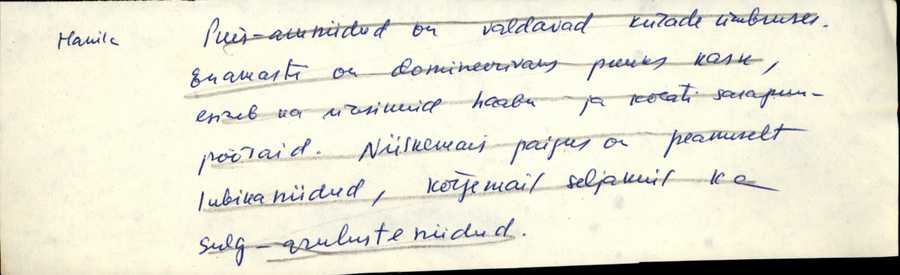 Manila Puis-aruniidud on valdavad külade ümbruses.
Enamasti on domineerivaks puuks kask,
esineb ka üksikuid haabu ja kohati sarapuu-
põõsaid. Niiskemais paigus on peamiselt
lubikaniidud, kõrgemail seljakuil ka
sulg-aruluste niidud.